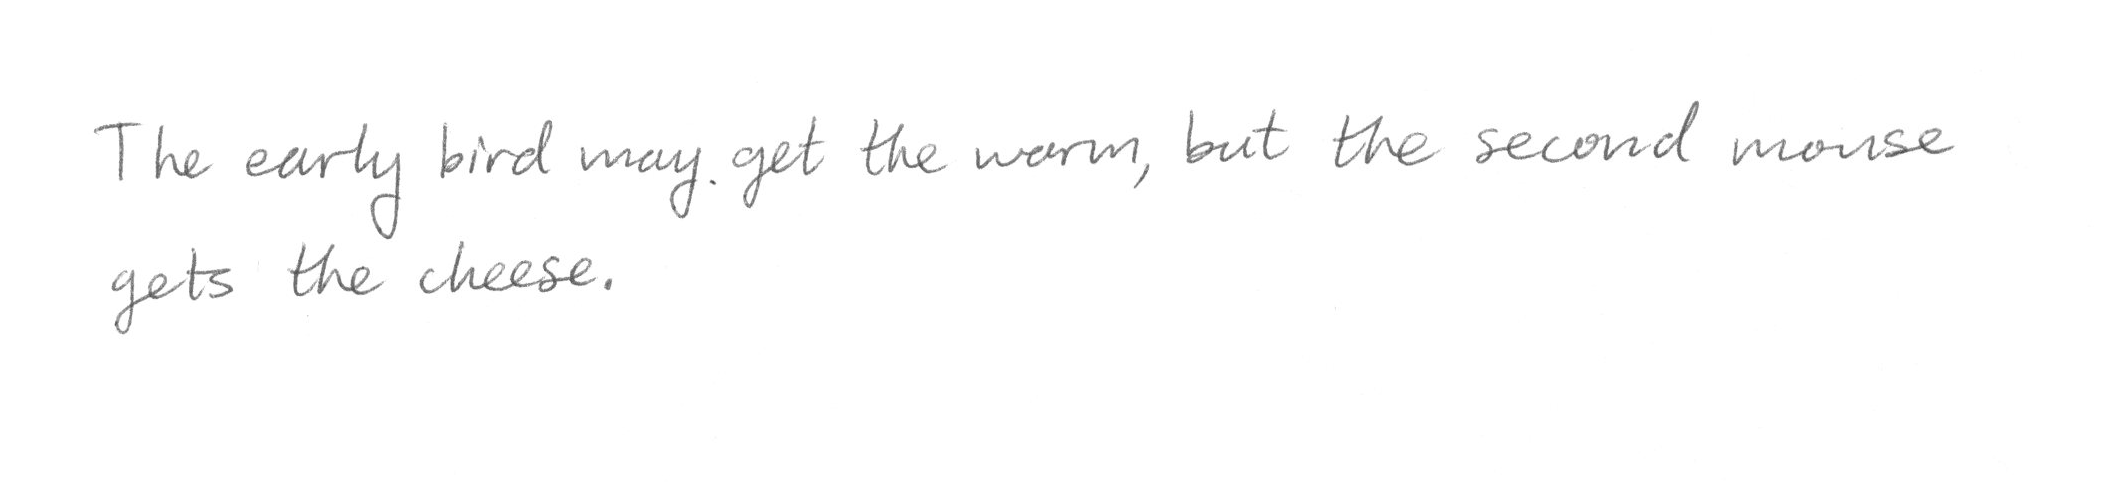 The early bird may. get the warm, but the second mouse
gets the cheese.